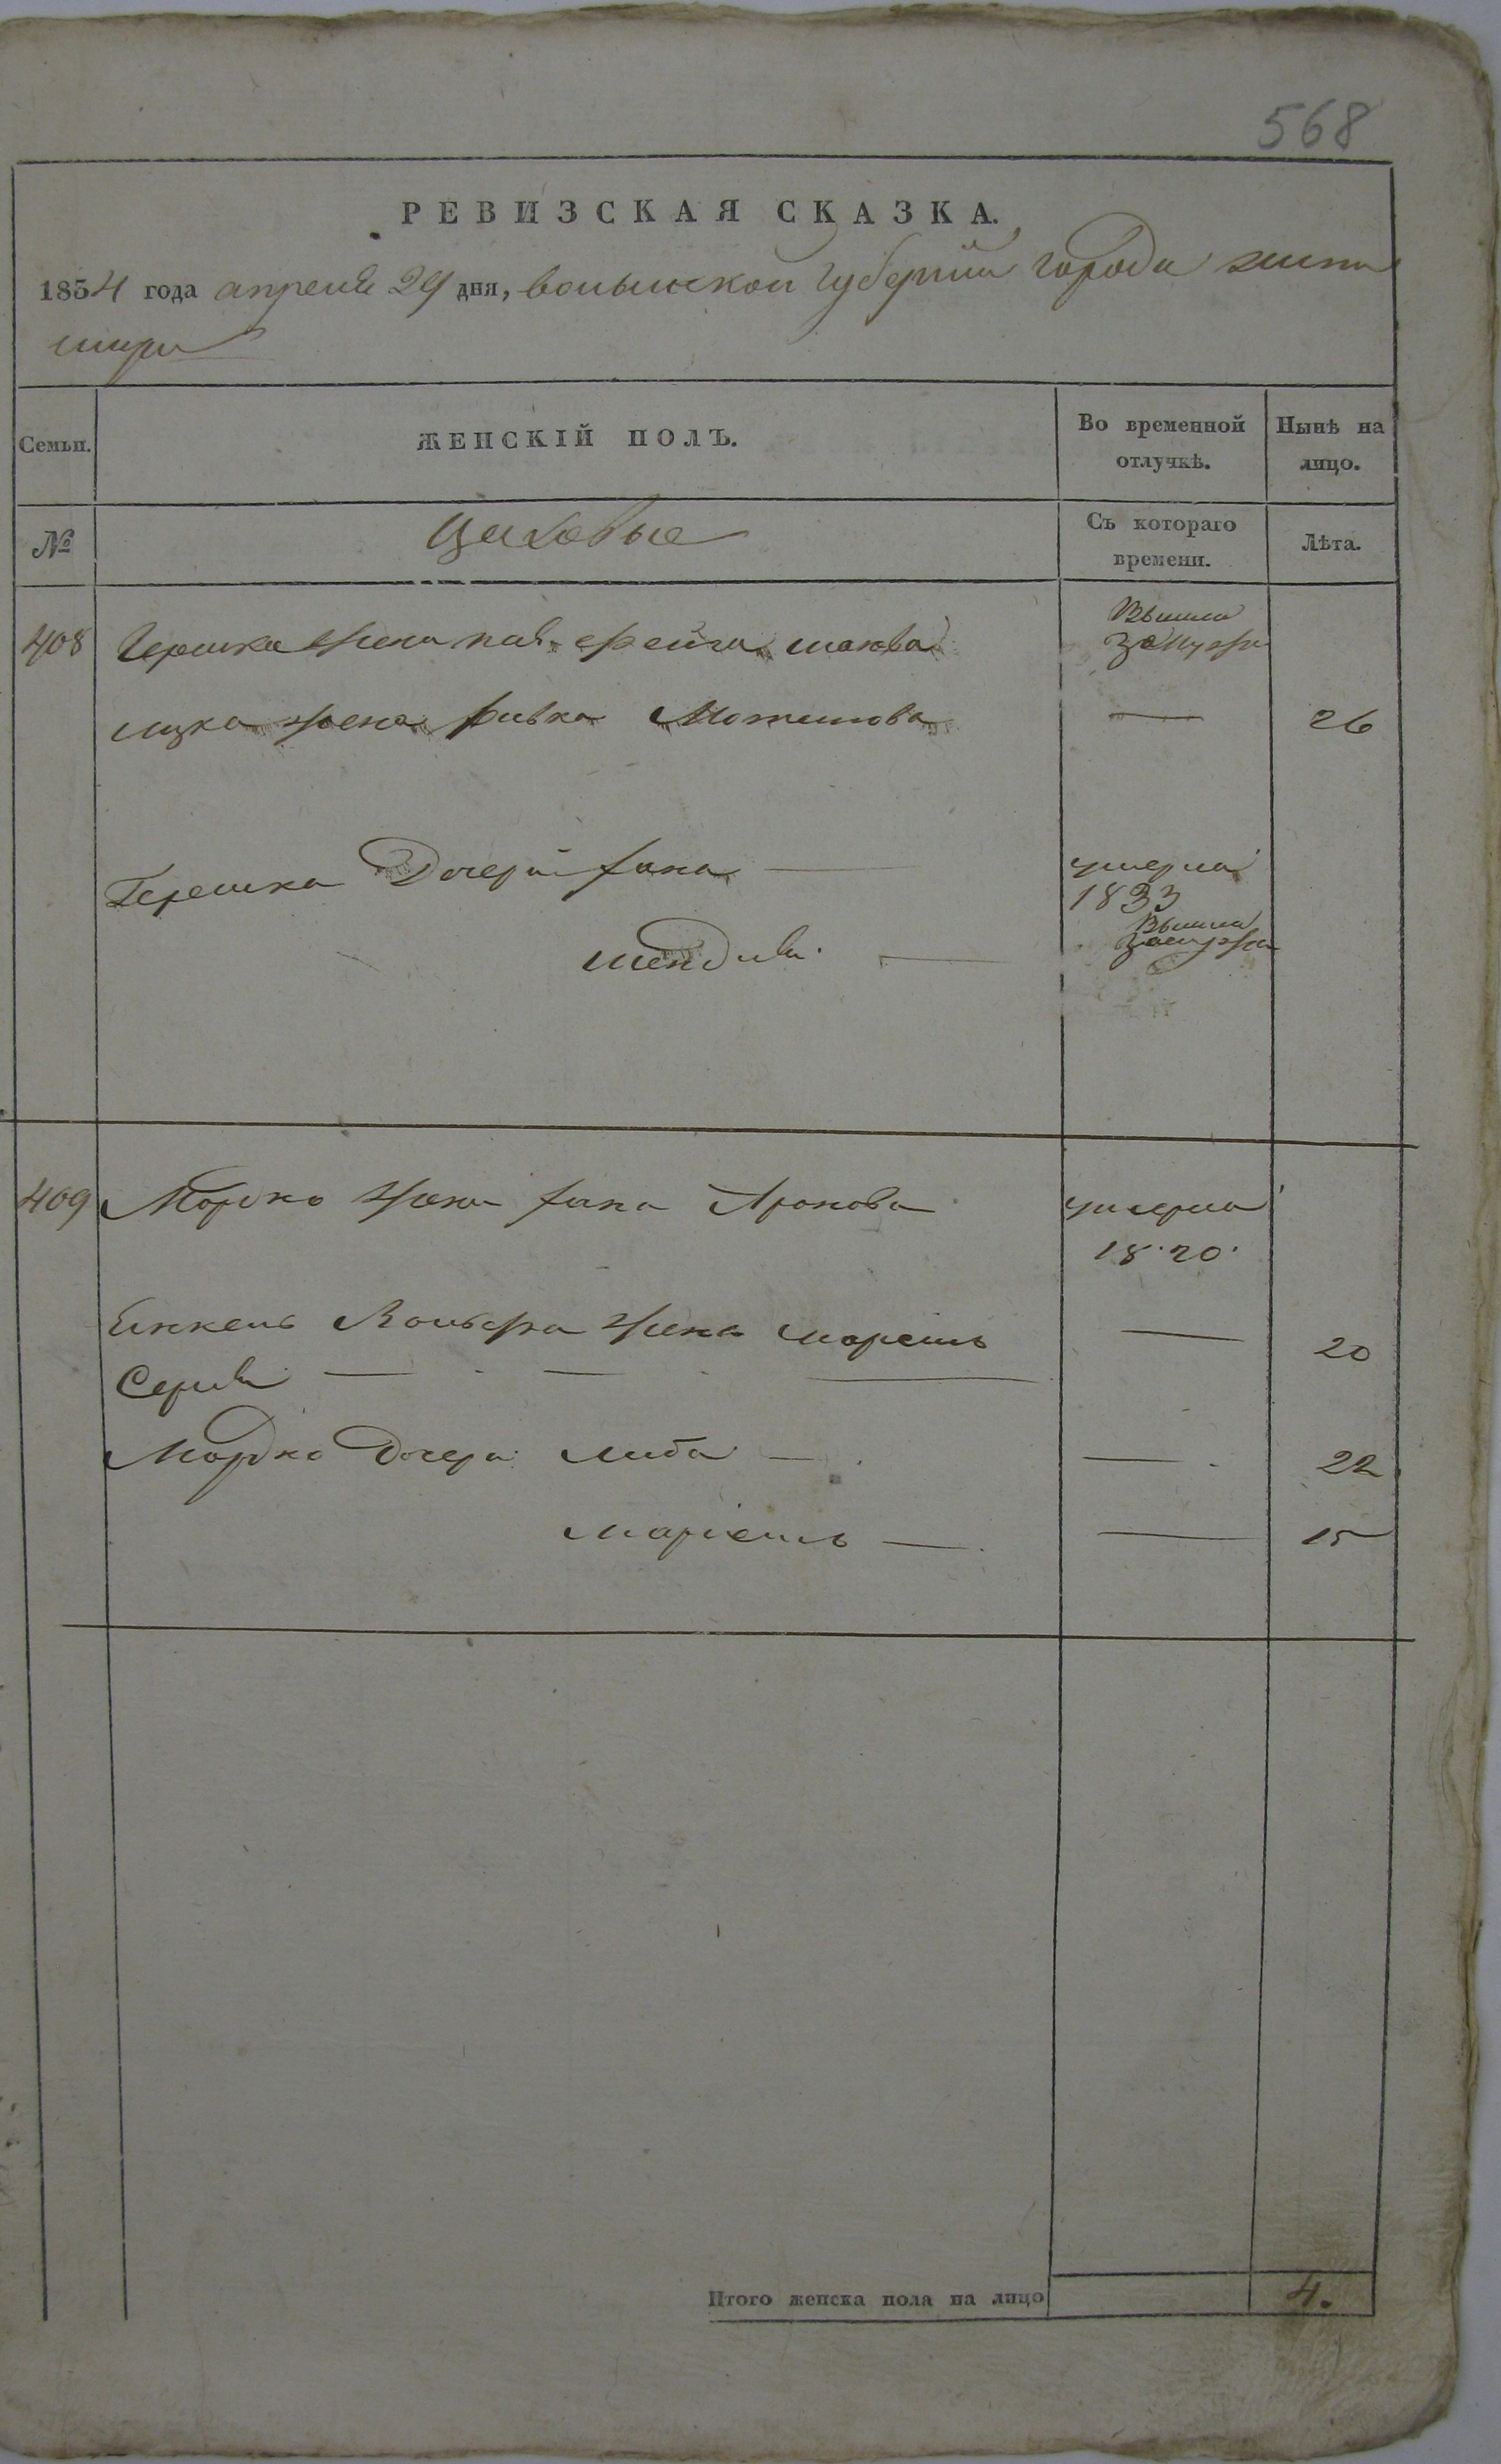 568
РЕВИЗСКАЯ СКАЗКА.
1834 года апреля 29 дня, волынской губернии города жито
мира
Семьи.
ЖЕНСКІЙ ПОЛЪ.
Во временной отлучкѣ.
Нынѣ на лицо.
№
Цеховые
Съ котораго времени.
Лѣта.
408 Гершка жена фейга Вышла
замужъ
ицка жена ривка — 26
Гершка дочери хана — умерла
1833
шендля — Вышла
замужъ
409 Мордко жена хана Аронова умерла
1820
Еинкель жена маріемъ — 20
Мордко дочери либа — — 22
маріемъ — — 15
Итого женска пола на лицо 4.